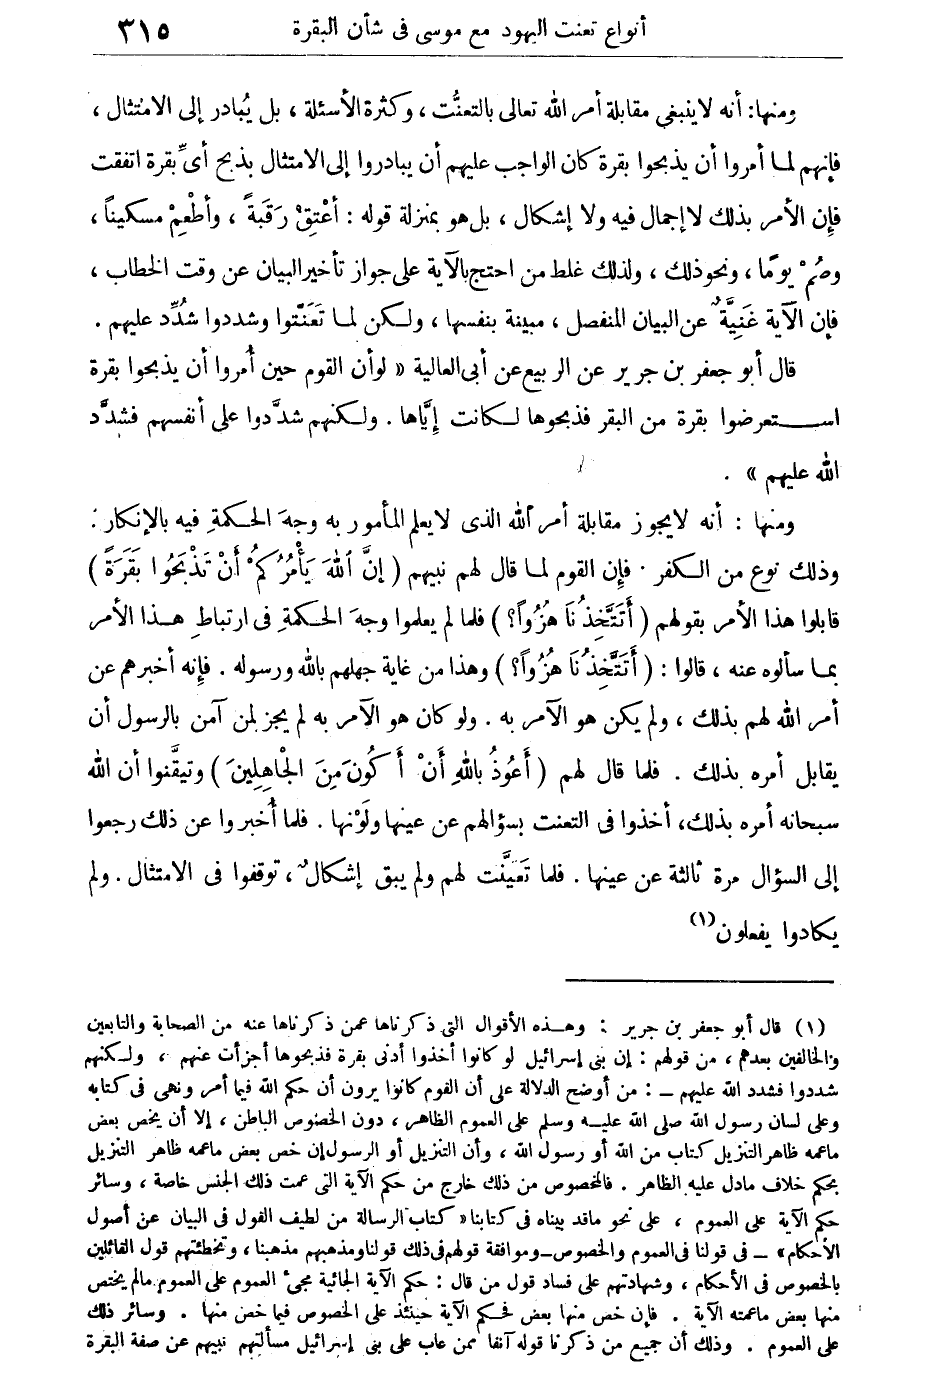 أنواع تعنت اليهود مع موسى فى شأن البقرة ٣١٥
ومنها: أنه لاينبغي مقابلة أمر الله تعالى بالتعنُّت، وكثرة الأسئلة، بل يُبادر إلى الامتثال،
فإنهم لما أمروا أن يذبحوا بقرة كان الواجب عليهم أن يبادروا إلى الامتثال بذبح أىِّ بقرة اتفقت
فإن الأمر بذلك لا إجمال فيه ولا إشكال، بل هو بمنزلة قوله: أعْتِقْ رَقَبَةً، وأطْعِمْ مسكيناً،
وصُمْ يومًا، ونحو ذلك، ولذلك غلط من احتج بالآية على جواز تأخير البيان عن وقت الخطاب،
فإن الآية غَنِيَّةٌ عن البيان المنفصل، مبينة بنفسها، ولكن لما تَعَنَّتوا وشددوا شُدِّد عليهم.
قال أبو جعفر بن جرير عن الربيع عن أبى العالية « لوأن القوم حين أُمروا أن يذبحوا بقرة
استعرضوا بقرة من البقر فذبحوها لكانت إيَّاها. ولكنهم شدَّدوا على أنفسهم فشدَّد
الله عليهم ».
ومنها: أنه لايجوز مقابلة أمر الله الذى لايعلم المأمور به وجهَ الحكمةِ فيه بالإنكار:
وذلك نوع من الكفر. فإن القوم لما قال لهم نبيهم (إنَّ اللهَ يَأْمُرُكمُ أَنْ تَذْبَحُوا بَقَرَةً)
قابلوا هذا الأمر بقولهم (أَتَتَّخِذُنَا هُزُواً؟) فلما لم يعلموا وجهَ الحكمةِ فى ارتباطِ هذا الأمر
بما سألوه عنه، قالوا: (أَتَتَّخِذُنَا هُزُواً؟) وهذا من غاية جهلهم بالله ورسوله. فإنه أخبرهم عن
أمر الله لهم بذلك، ولم يكن هو الآمر به. ولو كان هو الآمر به لم يجز لمن آمن بالرسول أن
يقابل أمره بذلك. فلما قال لهم (أَعُوذُ بِاللهِ أَنْ أَكُونَ مِنَ الْجَاهِلِينَ) وتيقَّنوا أن الله
سبحانه أمره بذلك، أخذوا فى التعنت بسؤالهم عن عينها ولَوْنها. فلما أُخبروا عن ذلك رجعوا
إلى السؤال مرة ثالثة عن عينها. فلما تَعَيَّنت لهم ولم يبق إشكالٌ، توقفوا فى الامتثال. ولم
يكادوا يفعلون (١)
(١) قال أبو جعفر بن جرير: وهذه الأقوال التى ذكرناها عمن ذكرناها عنه من الصحابة والتابعين
والخالفين بعدهم، من قولهم: إن بنى إسرائيل لو كانوا أخذوا أدنى بقرة فذبحوها أجزأت عنهم، ولكنهم
شددوا فشدد الله عليهم ــ : من أوضح الدلالة على أن القوم كانوا يرون أن حكم الله فيما أمر ونهى فى كتابه
وعلى لسان رسول الله صلى الله عليه وسلم على العموم الظاهر، دون الخصوص الباطن، إلا أن يخص بعض
ماعمه ظاهر التنزيل كتاب من الله أو رسول الله، وأن التنزيل أو الرسول إن خص بعض ماعمه ظاهر التنزيل
بحكم خلاف مادل عليه الظاهر. فالمخصوص من ذلك خارج من حكم الآية التى عمت ذلك الجنس خاصة، وسائر
حكم الآية على العموم، على نحو ماقد بيناه فى كتابنا « كتاب الرسالة من لطيف القول فى البيان عن أصول
الأحكام » ــ فى قولنا فى العموم والخصوص ــ وموافقة قولهم فى ذلك قولنا ومذهبهم مذهبنا، وتخطئتهم قول القائلين
بالخصوص فى الأحكام، وشهادتهم على فساد قول من قال: حكم الآية الجائية مجىء العموم على العموم مالم يختص
منها بعض ماعمته الآية. فإن خص منها بعض فحكم الآية حينئذ على الخصوص فيما خص منها. وسائر ذلك
على العموم. وذلك أن جميع من ذكرنا قوله آنفا ممن عاب على بنى إسرائيل مسألتهم نبيهم عن صفة البقرة